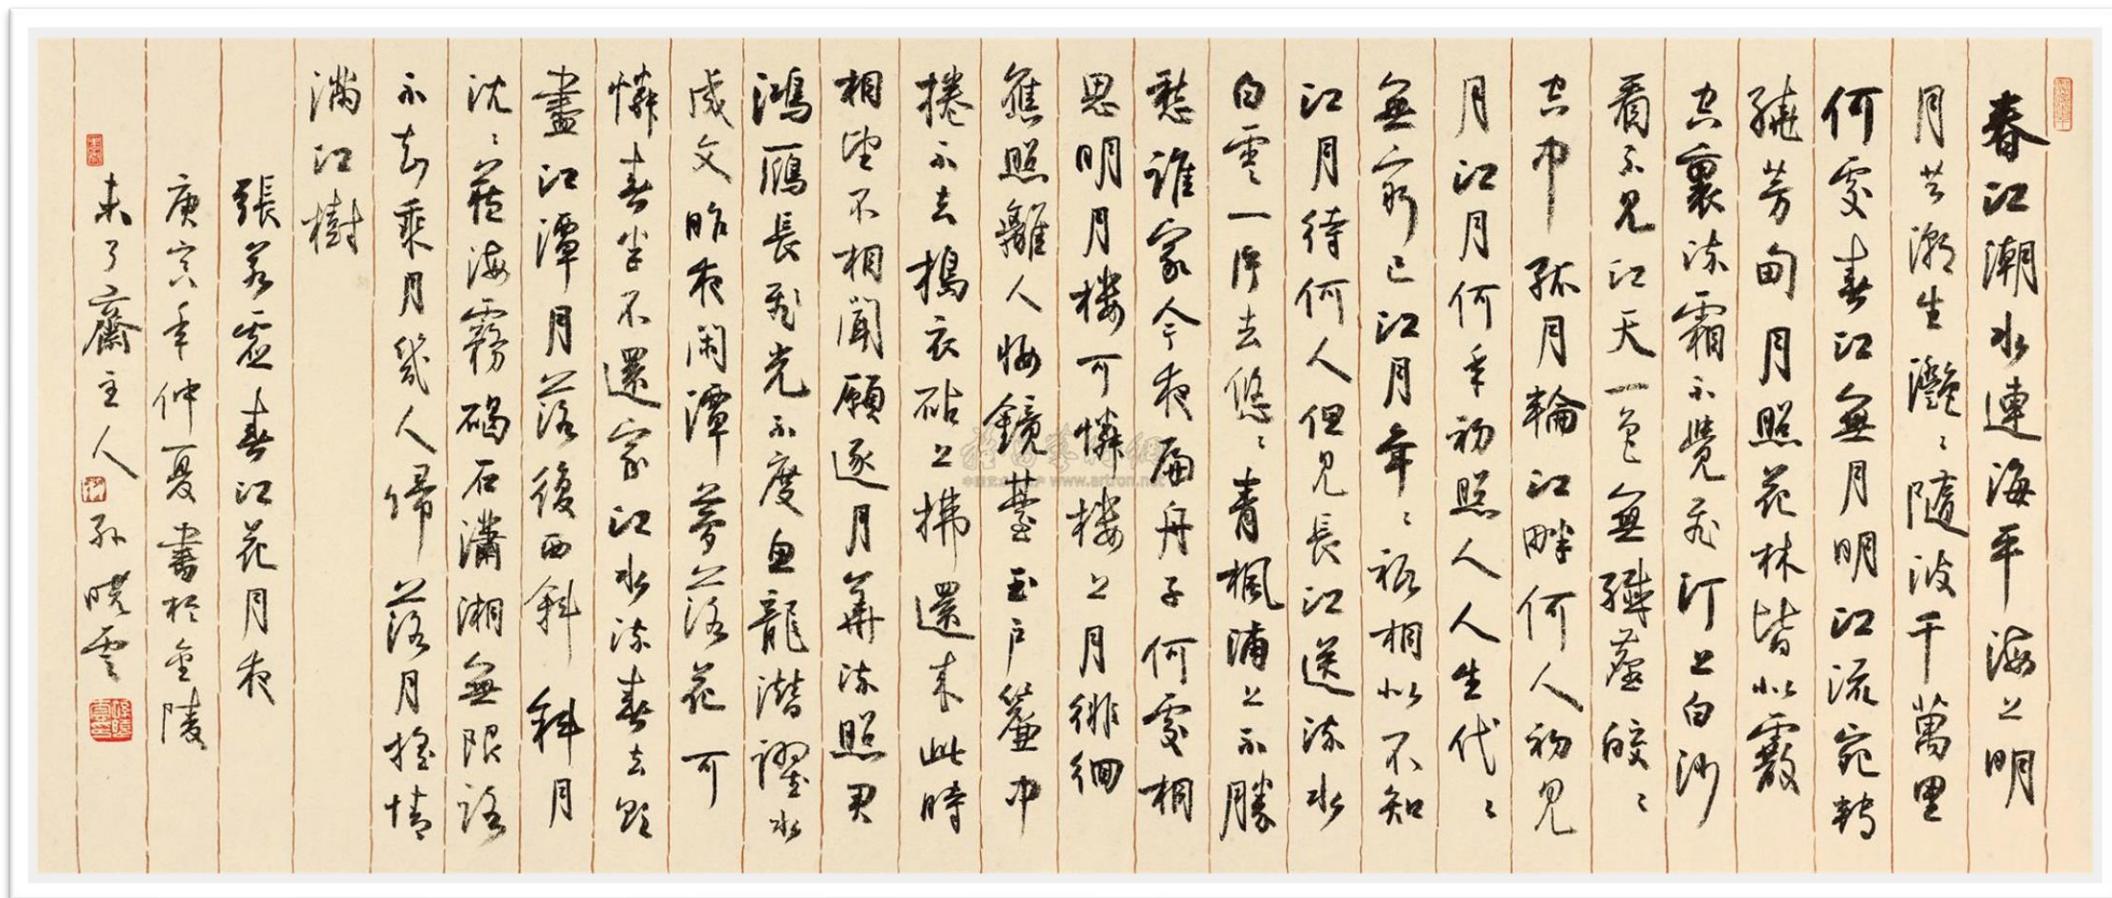 春江潮水連海平海上明
月共潮生灩〻隨波千萬里
何處春江無月明江流宛轉
繞芳甸月照花林皆似霰
空裏流霜不覺飛汀上白沙
看不見江天一色無纖塵皎〻
空中孤月輪江畔何人初見
月江月何年初照人人生代〻
無窮已江月年〻祇相似不知
江月待何人但見長江送流水
白雲一片去悠〻青楓浦上不勝
愁誰家今夜扁舟子何處相
思明月樓可憐樓上月徘徊
應照離人妝鏡臺玉戶簾中
捲不去搗衣砧上拂還來此時
相望不相聞願逐月華流照君
鴻鴈長飛光不度魚龍潛躍水
成文昨夜閑潭夢落花可
憐春半不還家江水流春去欲
盡江潭月落復西斜斜月
沈〻藏海霧碣石瀟湘無限路
不知乘月幾人歸落月搖情
滿江樹
張若虛春江花月夜
庚寅年仲夏書於金陵
未了齋主人孫曉雲
www.artron.net